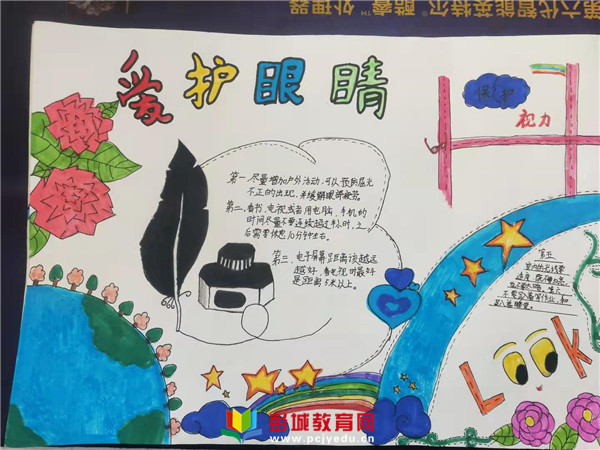 第六代智能英特尔® 酷睿™ 处理器
爱护眼睛
保护
视力
第一、尽量增加户外活动,可以预防屈光
不正的出现,并缓解眼部疲劳。
第二、看书、电视或者用电脑、手机的
时间尽量不要连续超过1小时,之
后需要休息10分钟左右。
第三、电子屏幕距离该越远
越好,看电视时最好
是距离3米以上。
第五
Look
彭城教育网
www.pcjyedu.cn